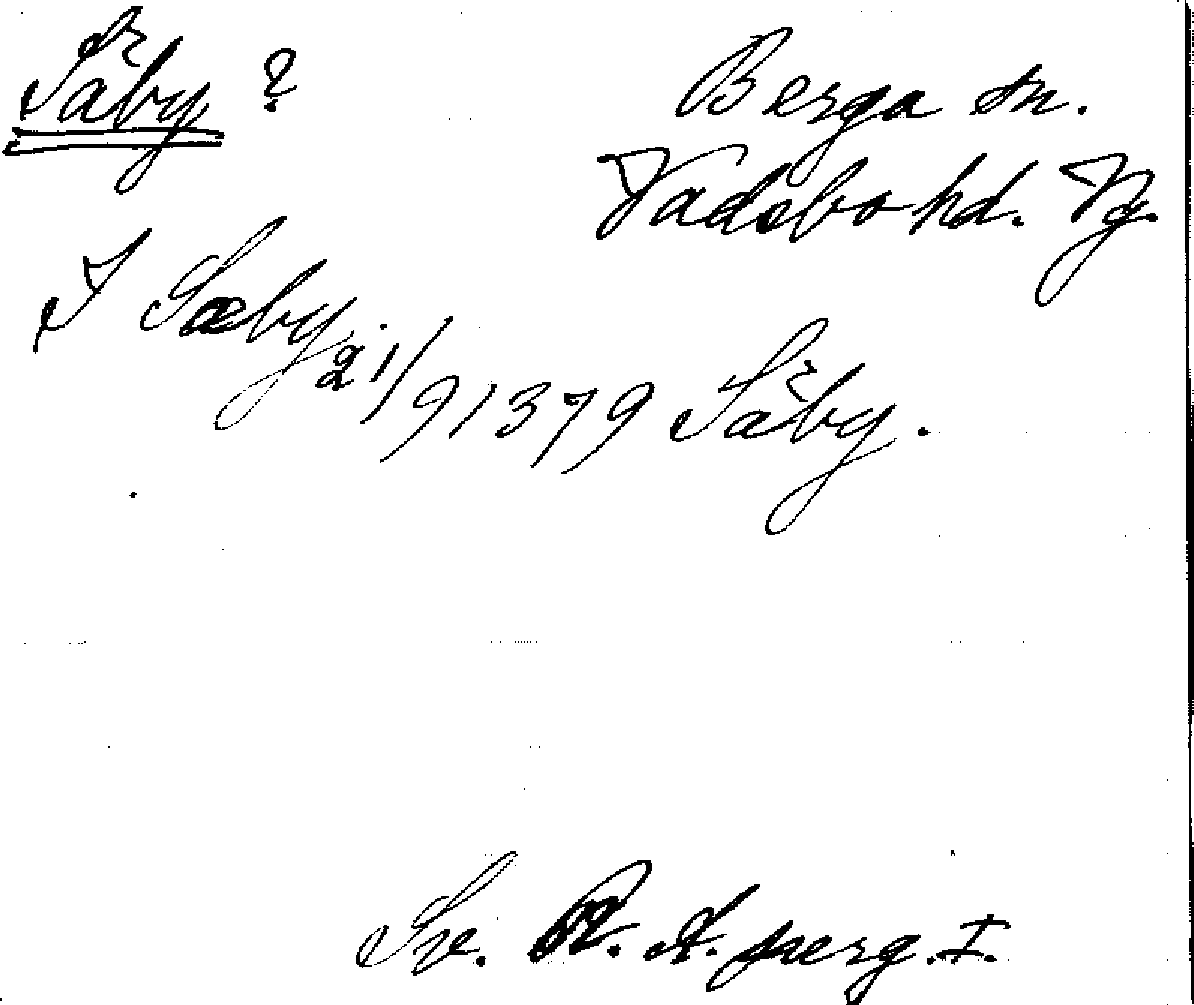 Säby ? Berga sn.
Vadsbo hd. Vg.
I Sæby 21/9 1379 Säby.
Sv. R. A. perg. I.